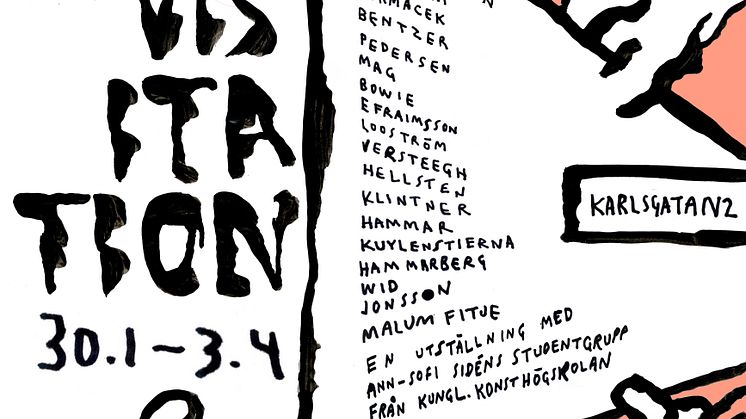 VIS
ITA
TION
30.1–3.4
BENTZER
PEDERSEN
MAG
BOWIE
EFRAIMSSON
LOOSTRÖM
VERSTEEGH
HELLSTEN
KLINTNER
HAMMAR
KUYLENSTIERNA
HAMMARBERG
WID
JONSSON
MALUM FITUE
EN UTSTÄLLNING MED
ANN-SOFI SIDÉNS STUDENTGRUPP
FRÅN KUNGL. KONSTHÖGSKOLAN
KARLSGATAN 2